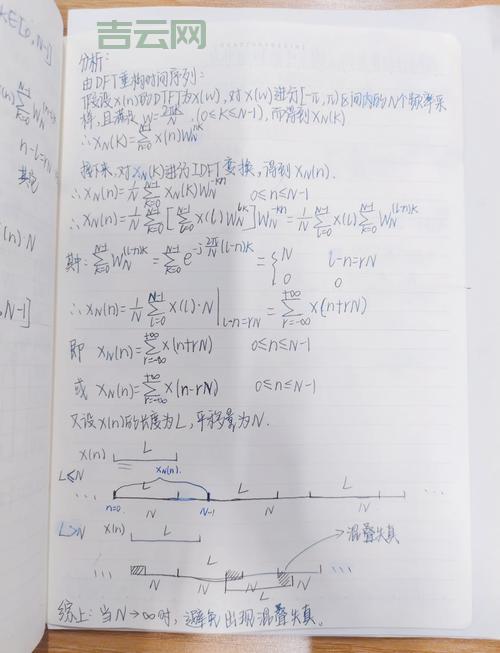 吉云网
分析:
由DFT重构时间序列:
假设x(n)的DTFT为X(w),对X(w)进行[-π,π)区间内的N个频率采
样,且满足 w=2πk/N,(0≤k≤N-1),而得到X_N(k)
∴X_N(k)=∑_{n=0}^{N-1} x(n)W_N^{nk}
接下来,对X_N(k)进行IDFT变换,得到x_N(n).
∴x_N(n)=1/N ∑_{k=0}^{N-1} X_N(k)W_N^{-kn} 0≤n≤N-1
∴x_N(n)=1/N ∑_{k=0}^{N-1}[∑_{l=0}^{N-1} x(l)W_N^{lk}]W_N^{-kn}=1/N ∑_{l=0}^{N-1} x(l)∑_{k=0}^{N-1} W_N^{(l-n)k}
其中:∑_{k=0}^{N-1} W_N^{(l-n)k}=∑_{k=0}^{N-1} e^{-j 2π/N (l-n)k}={N l-n=rN
0 0
∴x_N(n)=1/N ∑_{l=0}^{N-1} x(l)·N|_{l-n=rN}=∑_{r=-∞}^{+∞} x(n+rN)
即 x_N(n)=∑_{r=-∞}^{+∞} x(n+rN) 0≤n≤N-1
或 x_N(n)=∑_{r=-∞}^{+∞} x(n-rN) 0≤n≤N-1
又设x(n)的长度为L,平移量为N.
x(n) L
L≤N x_N(n)
L L L
n=0 N N-1 N N
L>N x(n) L
混叠失真
L
... N N N N ...
L
综上:当N→∞时,避免出现混叠失真。